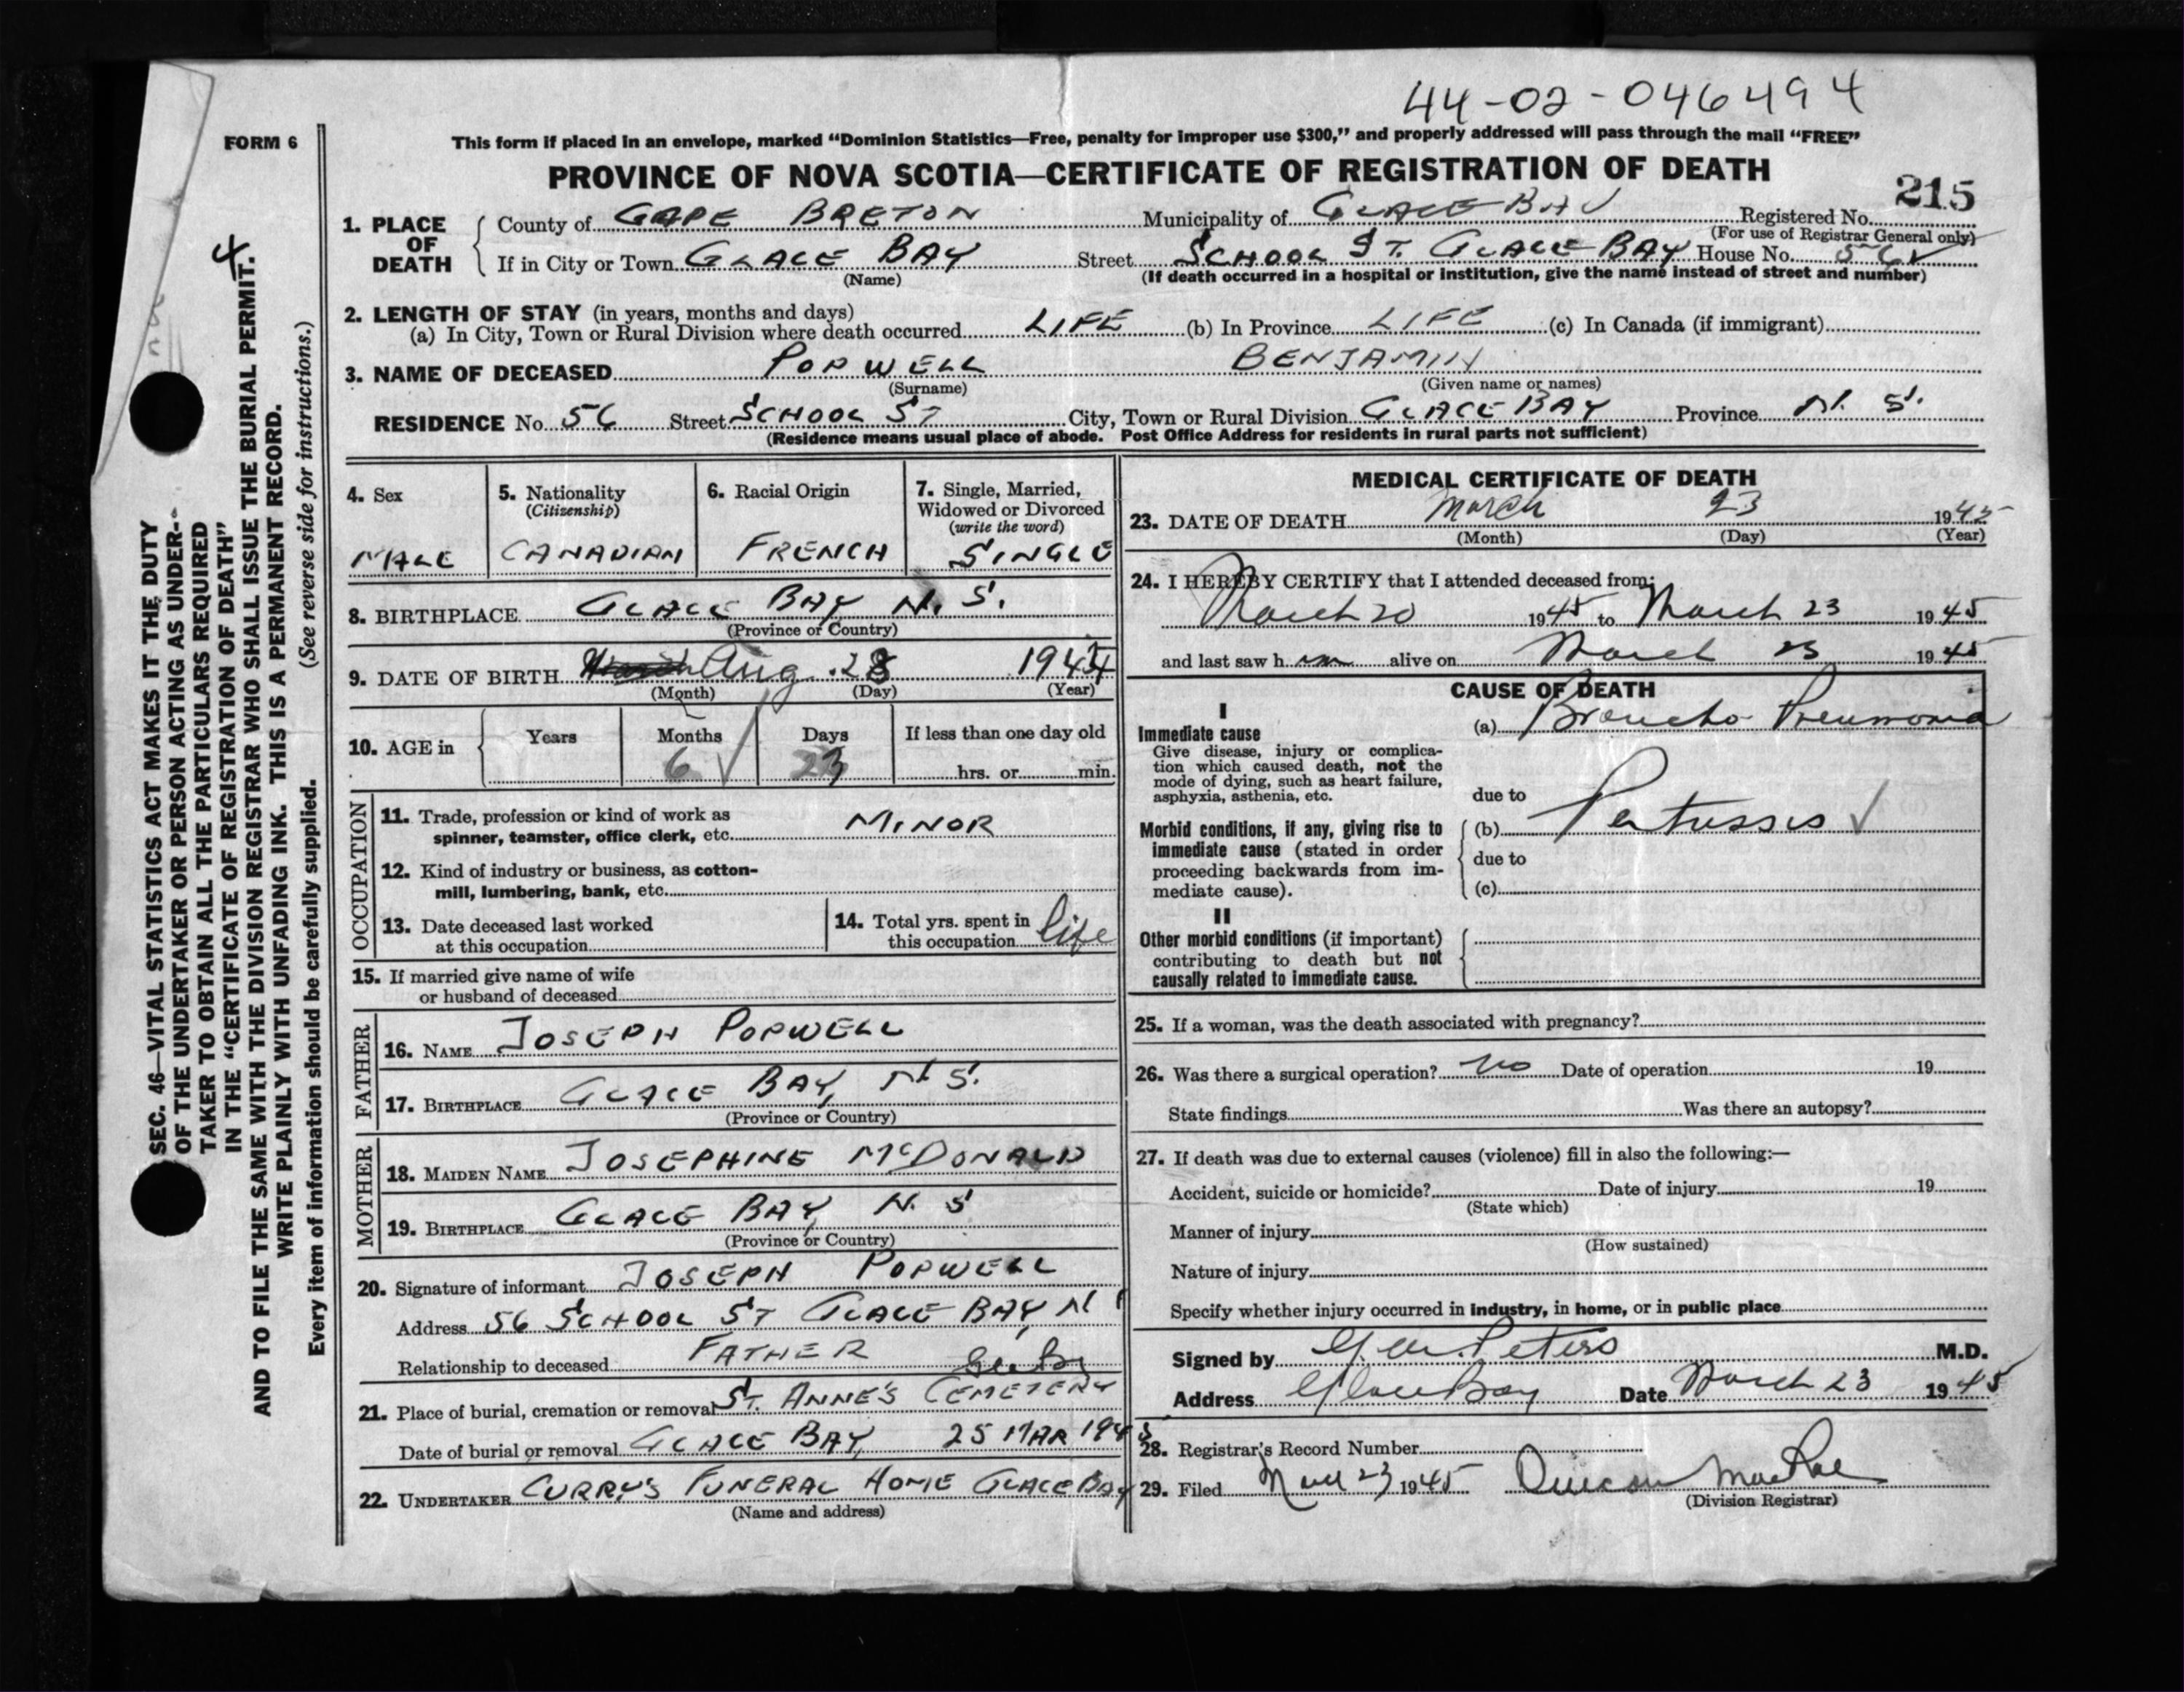 44-02-046494
FORM 6
This form if placed in an envelope, marked “Dominion Statistics—Free, penalty for improper use $300,” and properly addressed will pass through the mail “FREE”
PROVINCE OF NOVA SCOTIA—CERTIFICATE OF REGISTRATION OF DEATH
215
1. PLACE OF DEATH
County of CAPE BRETON Municipality of GLACE BAY Registered No.
(For use of Registrar General only)
If in City or Town GLACE BAY Street SCHOOL ST. GLACE BAY House No. 56
(Name) (If death occurred in a hospital or institution, give the name instead of street and number)
2. LENGTH OF STAY (in years, months and days)
(a) In City, Town or Rural Division where death occurred LIFE (b) In Province LIFE (c) In Canada (if immigrant)
3. NAME OF DECEASED POPWELL BENJAMIN
(Surname) (Given name or names)
RESIDENCE No. 56 Street SCHOOL ST City, Town or Rural Division GLACE BAY Province N. S.
(Residence means usual place of abode. Post Office Address for residents in rural parts not sufficient)
4. Sex
MALE
5. Nationality
(Citizenship)
CANADIAN
6. Racial Origin
FRENCH
7. Single, Married,
Widowed or Divorced
(write the word)
SINGLE
8. BIRTHPLACE GLACE BAY N. S.
(Province or Country)
9. DATE OF BIRTH Aug. 28 1944
(Month) (Day) (Year)
10. AGE in Years Months Days If less than one day old
6 23 hrs. or min.
OCCUPATION
11. Trade, profession or kind of work as
spinner, teamster, office clerk, etc. MINOR
12. Kind of industry or business, as cotton-
mill, lumbering, bank, etc.
13. Date deceased last worked
at this occupation
14. Total yrs. spent in
this occupation life
15. If married give name of wife
or husband of deceased
FATHER
16. NAME JOSEPH POPWELL
17. BIRTHPLACE GLACE BAY, N S.
(Province or Country)
MOTHER
18. MAIDEN NAME JOSEPHINE McDONALD
19. BIRTHPLACE GLACE BAY, N. S
(Province or Country)
20. Signature of informant JOSEPH POPWELL
Address 56 SCHOOL ST GLACE BAY, N
Relationship to deceased FATHER
21. Place of burial, cremation or removal ST. ANNE'S CEMETERY
Date of burial or removal GLACE BAY, 25 MAR 1945
22. UNDERTAKER CURRY'S FUNERAL HOME GLACE BAY
(Name and address)
MEDICAL CERTIFICATE OF DEATH
23. DATE OF DEATH March 23 1945
(Month) (Day) (Year)
24. I HEREBY CERTIFY that I attended deceased from:
March 20 1945 to March 23 1945
and last saw h im alive on March 23 1945
CAUSE OF DEATH
I
Immediate cause
Give disease, injury or complica-
tion which caused death, not the
mode of dying, such as heart failure,
asphyxia, asthenia, etc.
(a) Broncho Pneumonia
due to
Morbid conditions, if any, giving rise to
immediate cause (stated in order
proceeding backwards from im-
mediate cause).
(b) Pertussis
due to
(c)
II
Other morbid conditions (if important)
contributing to death but not
causally related to immediate cause.
25. If a woman, was the death associated with pregnancy?
26. Was there a surgical operation? no Date of operation 19
State findings Was there an autopsy?
27. If death was due to external causes (violence) fill in also the following:—
Accident, suicide or homicide? Date of injury 19
(State which)
Manner of injury
(How sustained)
Nature of injury
Specify whether injury occurred in industry, in home, or in public place
Signed by Peters M.D.
Address Glace Bay Date March 23 1945
28. Registrar's Record Number
29. Filed 23 1945 Duncan MacRae
(Division Registrar)
4
SEC. 46—VITAL STATISTICS ACT MAKES IT THE DUTY
OF THE UNDERTAKER OR PERSON ACTING AS UNDER-
TAKER TO OBTAIN ALL THE PARTICULARS REQUIRED
IN THE “CERTIFICATE OF REGISTRATION OF DEATH”
AND TO FILE THE SAME WITH THE DIVISION REGISTRAR WHO SHALL ISSUE THE BURIAL PERMIT.
WRITE PLAINLY WITH UNFADING INK. THIS IS A PERMANENT RECORD.
Every item of information should be carefully supplied. (See reverse side for instructions.)